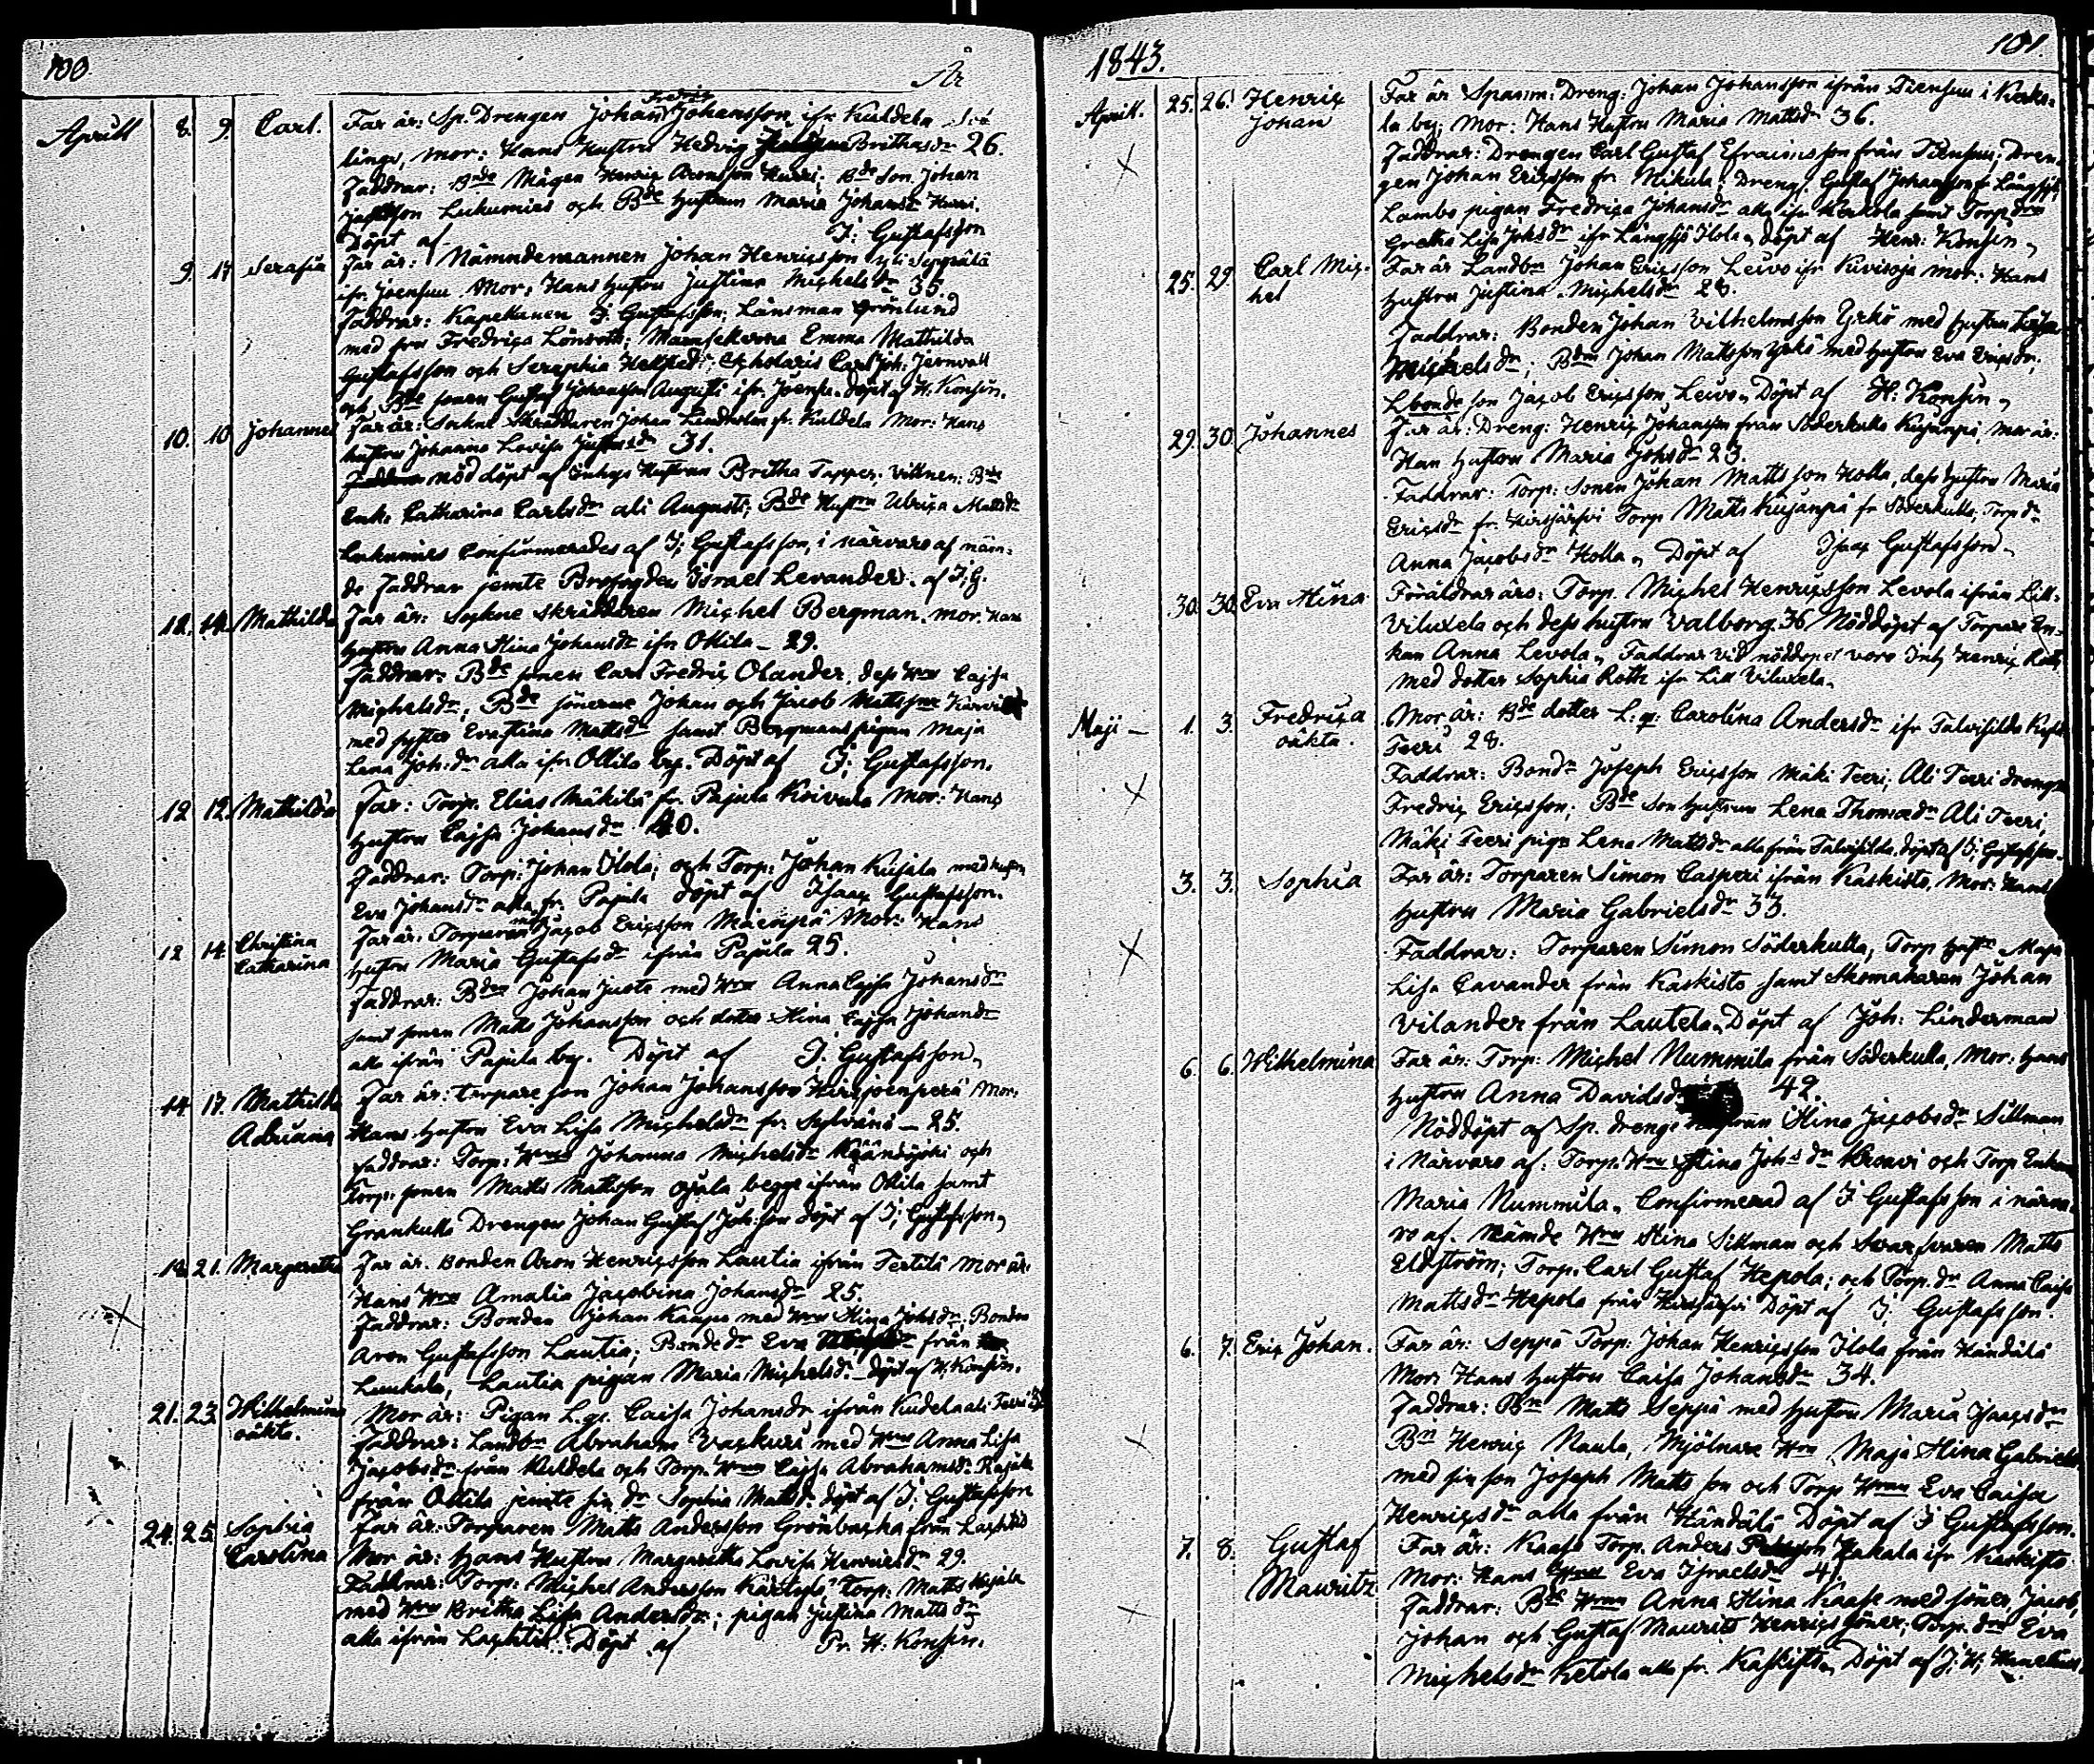 100.
År
Aprill 8. 9. Carl. Far är: Sp. Drengen Johan Fredric Johansson, ifr Kuldela
lings, mor: Hans Hustru Hedvig Brithasdr 26.
Faddrar: Bnde Mågen Henric Aronsson Harri; Bde son Johan
Lukumies och Bde hustrun Maria Johansdr Harri.
Döpt af J: Gustafsson
9. 17 Serafia Far är: Nämndemannen Johan Henricsson yli Seppälä
ifr Joensuu Mor: Hans hustru Justina Michelsdr 35
Faddrar: Kapellanen J. Gustafsson; Länsman Grönlund
med fru Fredrica Lönroth; Mamsellerna Emma Mathilda
Gustafsson och Seraphia Hellstedt; Scholaris Carl Joh: Jernvall
och Bde sonen Gustaf Johansson Augusti ifr Joensu. Döpt af H. Konsin.
10. 10 Johannes Far är: Sockne Skräddaren Johan Lindholm fr. Kuldela Mor: Hans
hustru Johanna Lovisa 31.
Nöddöpt af Enkys Hustrun Britha Tapper; Vittnen: Bde
Enk: Catharina Carlsdr ali Augusti; Bde Hustru Ulrica Mattsdr
Lukumies Confirmerades af J; Gustafsson, i närvaro af näm-
de Faddrar jemte Brofogden Israel Levander. af J; G.
12. 14. Mathilda Far är: Sockne skräddaren Michel Bergman. mor: Hans
hustru Anna Stina Johansdr ifr Ollila – 29.
Faddrar: Bde sonen Carl Fredric Olander, dess Hru Cajsa
Michelsdr; Bde sönerne Johan och Jacob Mattsson
med syster Evastina Mattsdr samt Bergmans pigan Maja
Lena Joh:dr alla ifr Ollila by. Döpt af J; Gustafsson.
12 12. Mathilda Far: Torp. Elias Mäkilä fr. Pajula Koivula Mor: Hans
Hustru Cajsa Johansdr 40.
Faddrar: Torp: Johan Ilola; och Torp: Johan Kujala med hustru
Eva Johansdr alla fr. Pajula Döpt af Isaac Gustafsson.
12 14. Christina Catharina Far är: Torparen Jacob Ericsson Maenpä Mor: Hans
hustru Maria Gustafsdr ifrån Pajula 25.
Faddrar: Bden Johan Juste med Hru Anna Cajsa Johansdr
samt sonen Matts Johansson och dotter Stina Cajsa Johansdr
alla ifrån Pajula by. Döpt af J. Gustafsson,
14 17. Mathilda Adriana Far är: torpare son Johan Johansson Hirsjoenperä Mor:
Hans Hustru Eva Lisa Michelsdr fr: Sylvänä – 25.
Faddrar: Torp: Hrun Johanna Michelsdr och
Torp: sonen Matts Mattsson Ojala begge ifrån Ollila samt
Grankulla Drengen Johan Gustaf Joh:son döpt af J; Gustafsson,
14. 21. Margaretha Far är. Bonden Aron Henricsson Lautia ifrån Tertilä Mor är:
Hans Hru Amalia Jacobina Johansdr 25.
Faddrar: Bonden Johan Kaapu med Hru Stina Johsdr; Bonden
Aron Gustafsson Lautia; Bondedr Eva från
Luukala, Lautia pigan Maria Michelsd. – döpt af H. Konsin.
21. 23. Wilhelmina oäkta. Mor är: Pigan L. gr. Caisa Johansdr ifrån Kudela ali
Faddrar: Landbn Abraham Vackuri med Hru Anna Lisa
Jacobsdr från Kuldela och Torp. Hrun Cajsa Abrahamsdr Rajala
från Ollila jemte sin dr Sophia Mattsdr döpt af J; Gustafsson
24. 25. Sophia Carolina Far är: Torparen Matts Andersson Grönbacka från
Mor är: Hans Hustru Margaretha Lovisa Henricsdr 29.
Faddrar: Torp: Michel Andersson Torp: Matts Kujala
med Hru Britha Lisa Andersdr; pigan Justina Mattsdr
alla ifrån Döpt af Pr. H. Konsin.
1843.
101.
Aprill. 25. 26. Henric Johan Far är Spanm: Dreng: Johan Johansson ifrån Tiensuu i Kerko-
la by; Mor: Hans Hustru Maria Mattsdr 36.
Faddrar: Drengen Carl Gustaf Efraimsson från Tiensuu; Dren-
gen Johan Ericsson fr. Mikula; Dreng: Gustaf Johansson fr Långsjö
Lambo pigan Fredrica Johansdr alla ifr Kerkola samt Torp dr
Greta Lisa Johsdr ifr Långsjö Ilola, döpt af Henr: Konsin,
25. 29. Carl Mic-
hel Far är Landbn Johan Ericsson Leivo ifr Kivisoja mor: Hans
Hustru Justina Michelsdr 28.
Faddrar: Bonden Johan Vilhelmsson Yrkö med hustru
Michelsdr; Bden Johan Mattsson Yrkö med Hustru Eva Ericsdr;
Lbonde son Jacob Ericsson Leivo, Döpt af H: Konsin,
29. 30. Johannes Far är: Dreng: Henric Johansson från Söderkulla Kujanpä, mor är:
Han hustru Maria Johsdr 23.
Faddrar: Torp: Sonen Johan Mattsson Holla, dess hustru Maria
Ericsdr fr. Hirsjärfvi Torp Matts Kujanpä fr Söderkulla; Torp dr
Anna Jacobsdr Holla, Döpt af Isaac Gustafsson,
30. 30. Eva Stina Föräldrar äro: Torp. Michel Henricsson Levola ifrån Lill-
Viluxela och dess hustru Valborg 36 Nöddöpt af Torpare En-
kan Anna Levola, Faddrar vid nöddopet voro Inh Henric Roth
med dotter Sophia Roth ifr Lill Viluxela.
Maji – 1. 3. Fredrica oäkta. Mor är: Bde dotter L: q: Carolina Andersdr ifr Talvisilda
Teeri 28.
Faddrar: Bondn Joseph Ericsson Mäki Teeri; Ali Teeri drengen
Fredric Ericsson; Bde son hustrun Lena Thomædr Ali Teeri;
Mäki Teeri piga Lena Mattsdr alla från Talvisilda. döpt af J; Gustafsson.
3. 3. Sophia Far är: Torparen Simon Casperi ifrån Kaskisto, Mor: Hans
Hustru Maria Gabrielsdr 33.
Faddrar: Torparen Simon Söderkulla, Torp hustr Maja
Lisa Cavander från Kaskisto samt Skomakaren Johan
Vilander från Lautela, Döpt af Joh: Linderman
6. 6. Wilhelmina Far är: Torp: Michel Nummila från Söderkulla, Mor: Hans
Hustru Anna Davidsdr 42.
Nöddöpt af Sp. dreng: Hustrun Stina Jacobsdr Sillman
i Närvaro af: Torp: Hru Stina Johs dr och Torp Enkan
Maria Nummila, Confirmerad af J Gustafsson i närva-
ro af. Nämde Hru Stina Sillman och Svarfvaren Matts
Eldström; Torp. Carl Gustaf Hepola; och Torp. dr Anna Caisa
Mattsdr Hepola från Hirsjärfvi Döpt af J; Gustafsson.
6. 7. Eric Johan. Far är: Seppä Torp. Johan Henricsson Ilola från Händälä
Mor: Hans Hustru Caisa Johansdr 34.
Faddrar: Bn Matts Seppä med Hustru Maria Isacsdr
Bn Henric Naula, Mjölnare Hru Maja Stina Gabrielsd.
med sin son Joseph Mattsson och Torp Hrun Eva Caisa
Henricsdr alla från Händälä Döpt af J Gustafsson.
7. 8. Gustaf Mauritz Far är: Kaase Torp. Anders Hakala ifr Kaskisto
Mor: Hans Hru Eva Israelsdr 41.
Faddrar: Bde Hrun Anna Stina Kaase med söner, Jacob,
Johan och Gustaf Maurits Henrics söner; Torp. drn Eva
Michelsdr Ketola alla fr. Kaskisto, Döpt af J; H;